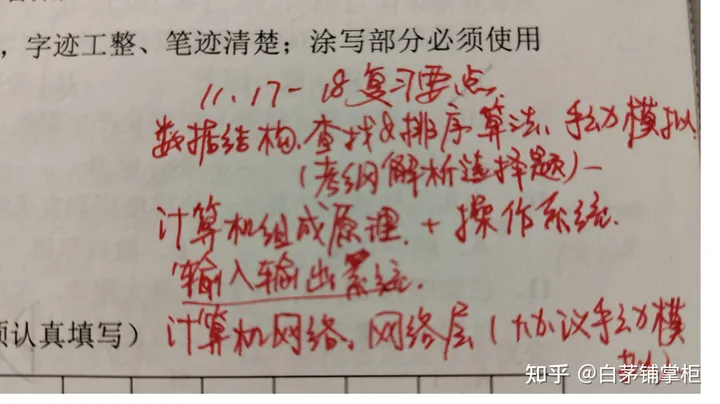 ，字迹工整、笔迹清楚；涂写部分必须使用
11.17-18复习要点.
数据结构.查找&排序算法、手动模拟
(考纲解析选择题)—
计算机组成原理.+操作系统.
输入输出系统.
须认真填写)
计算机网络、网络层(+协议手动模
拟)
知乎 @白茅铺掌柜